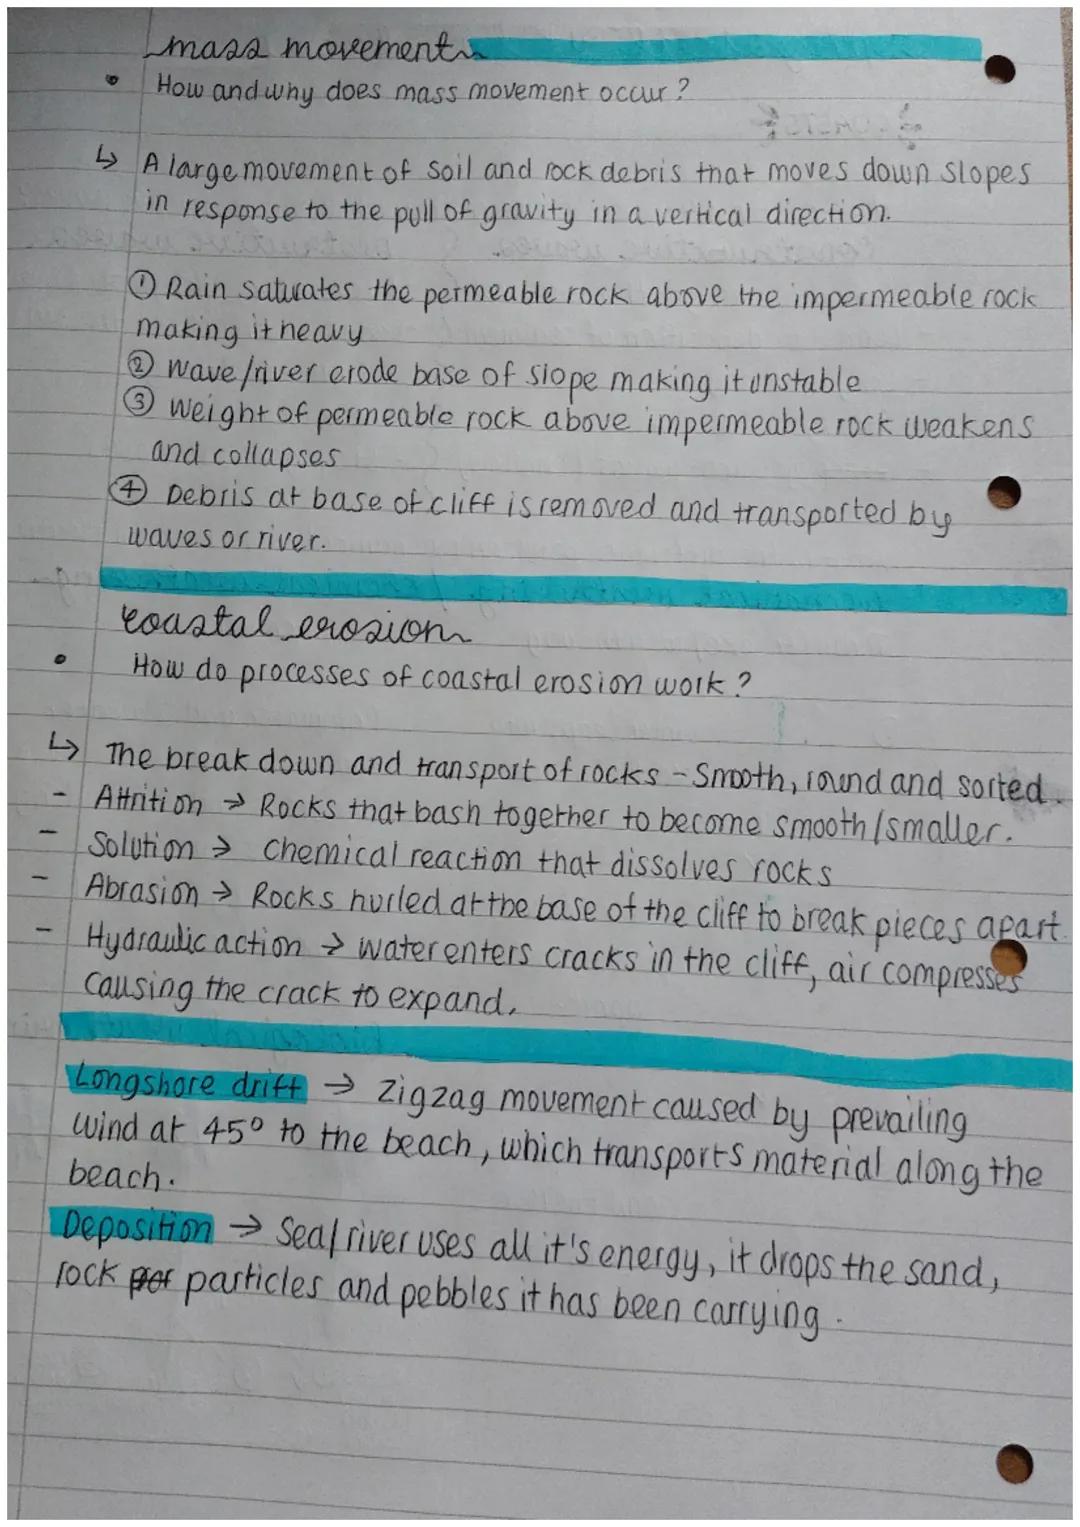 mass movement
• How and why does mass movement occur?
↳ A large movement of soil and rock debris that moves down slopes
in response to the pull of gravity in a vertical direction.
① Rain saturates the permeable rock above the impermeable rock
making it heavy
② wave/river erode base of slope making it unstable
③ Weight of permeable rock above impermeable rock weakens
and collapses
④ Debris at base of cliff is removed and transported by
waves or river.
coastal erosion
• How do processes of coastal erosion work?
↳ The break down and transport of rocks - Smooth, round and sorted.
- Attrition → Rocks that bash together to become smooth/smaller.
- Solution → chemical reaction that dissolves rocks
- Abrasion → Rocks hurled at the base of the cliff to break pieces apart.
- Hydraulic action → water enters cracks in the cliff, air compresses
causing the crack to expand.
Longshore drift → Zigzag movement caused by prevailing
wind at 45° to the beach, which transports material along the
beach.
Deposition → Sea/river uses all it's energy, it drops the sand,
rock particles and pebbles it has been carrying.